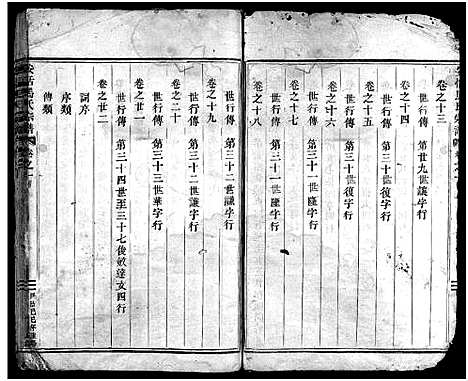 卷之十三
世行傳 第廿九世議字行
卷之十四
世行傳 第三十世復字行
卷之十五
世行傳 第三十世復字行
卷之十六
世行傳 第三十一世隆字行
卷之十八
世行傳 第三十一世隆字行
世行傳 第三十二世謙字行
卷之十九
世行傳 第三十二世謙字行
卷之二十
世行傳 第三十三世華字行
卷之廿一
世行傳 第三十四世至三十七俊敏達文四行
卷之廿二
詞序
序類
傳類
氏宗譜